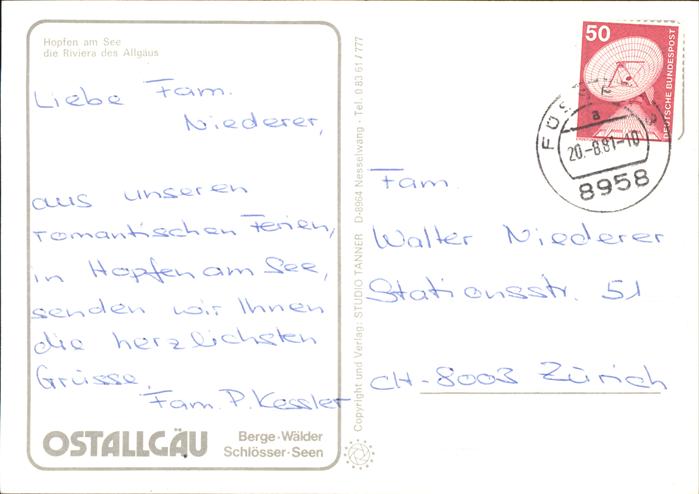 Hopfen am See
die Riviera des Allgäus
Liebe Fam.
Niederer,
aus unseren
romantischen Ferien,
in Hopfen am See,
senden wir Ihnen
die herzlichsten
Grüsse,
Fam. P. Kessler
OSTALLGÄU
Berge·Wälder
Schlösser·Seen
Copyright und Verlag: STUDIO TANNER D-8964 Nesselwang - Tel. 0 83 61 / 777
50
DEUTSCHE BUNDESPOST
a
20.-8.81-10
8958
Fam.
Walter Niederer
Stationsstr. 51
CH-8003 Zürich